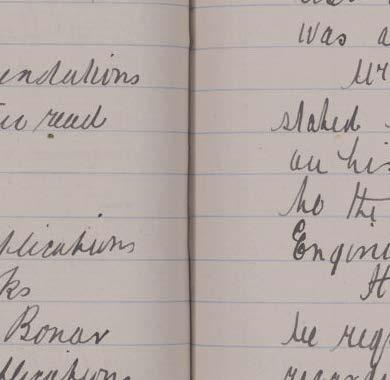 endations
to read
plications
ks
Bonar
plications
was a
Mr
stated
on his
to the
Engine
H
be req
regardi